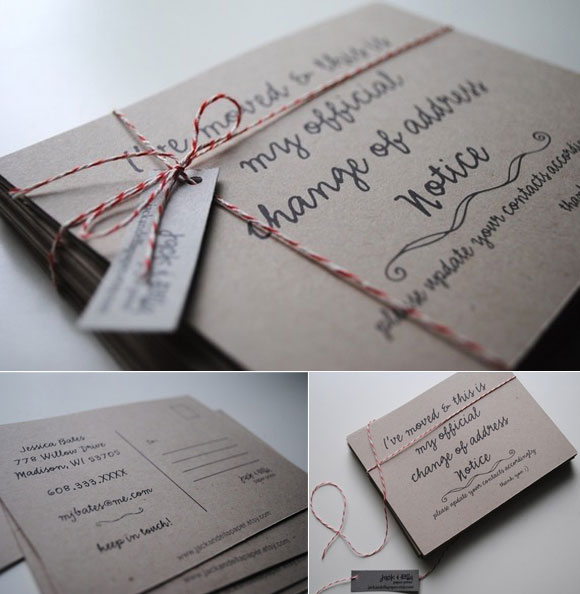 I've moved & this is
my official
change of address
Notice
please update your contacts accordin
than
Jack & Ella
Jessica Bates
778 Willow Drive
Madison, WI 53705
608.333.XXXX
mjbates@me.com
keep in touch!
to:
Jack & Ella
www.jackandellapaper.etsy.com
www.jackandellapaper.etsy.com
I've moved & this is
my official
change of address
Notice
please update your contacts accordingly
thank you :)
Jack & Ella